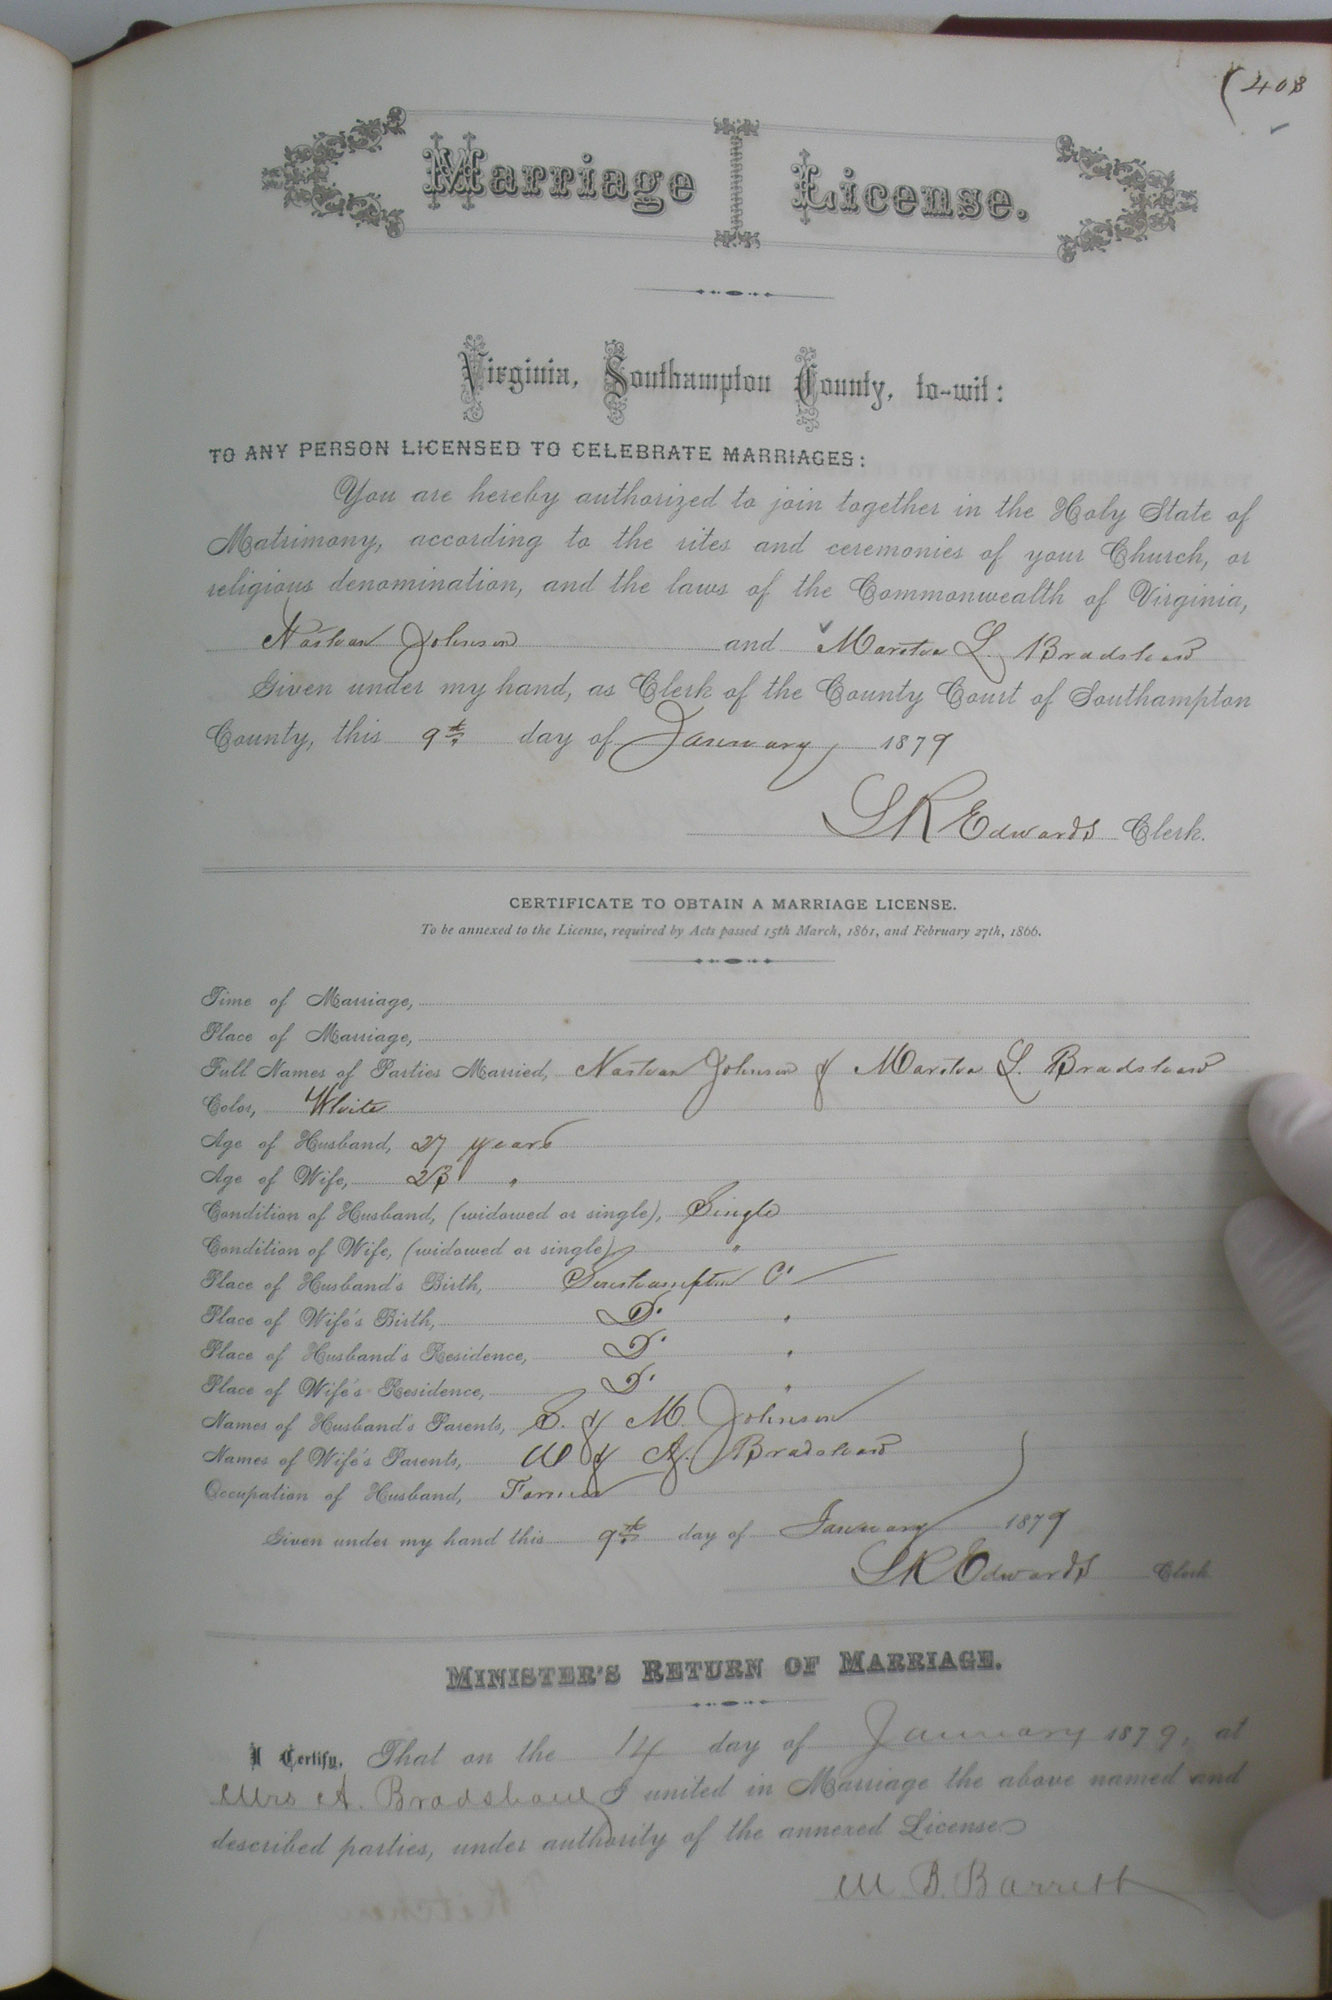 (408
Marriage License.
Virginia, Southampton County, to-wit:
TO ANY PERSON LICENSED TO CELEBRATE MARRIAGES:
You are hereby authorized to join together in the Holy State of
Matrimony, according to the rites and ceremonies of your Church, or
religious denomination, and the laws of the Commonwealth of Virginia,
Nathan Johnson and Martha L. Bradshaw
Given under my hand, as Clerk of the County Court of Southampton
County, this 9th day of January 1879
L R Edwards Clerk.
CERTIFICATE TO OBTAIN A MARRIAGE LICENSE.
To be annexed to the License, required by Acts passed 15th March, 1861, and February 27th, 1866.
Time of Marriage,
Place of Marriage,
Full Names of Parties Married, Nathan Johnson & Martha L. Bradshaw
Color, White
Age of Husband, 27 years
Age of Wife, 23 "
Condition of Husband, (widowed or single), Single
Condition of Wife, (widowed or single) "
Place of Husband's Birth, Southampton Co
Place of Wife's Birth, Do "
Place of Husband's Residence, Do "
Place of Wife's Residence, Do "
Names of Husband's Parents, & M. Johnson
Names of Wife's Parents, W & A. Bradshaw
Occupation of Husband, Farmer
Given under my hand this 9th day of January 1879
L R Edwards Clerk
MINISTER'S RETURN OF MARRIAGE.
I Certify, That on the 14 day of January 1879, at
Mrs A. Bradshaw I united in Marriage the above named and
described parties, under authority of the annexed License
W. B. Barrett